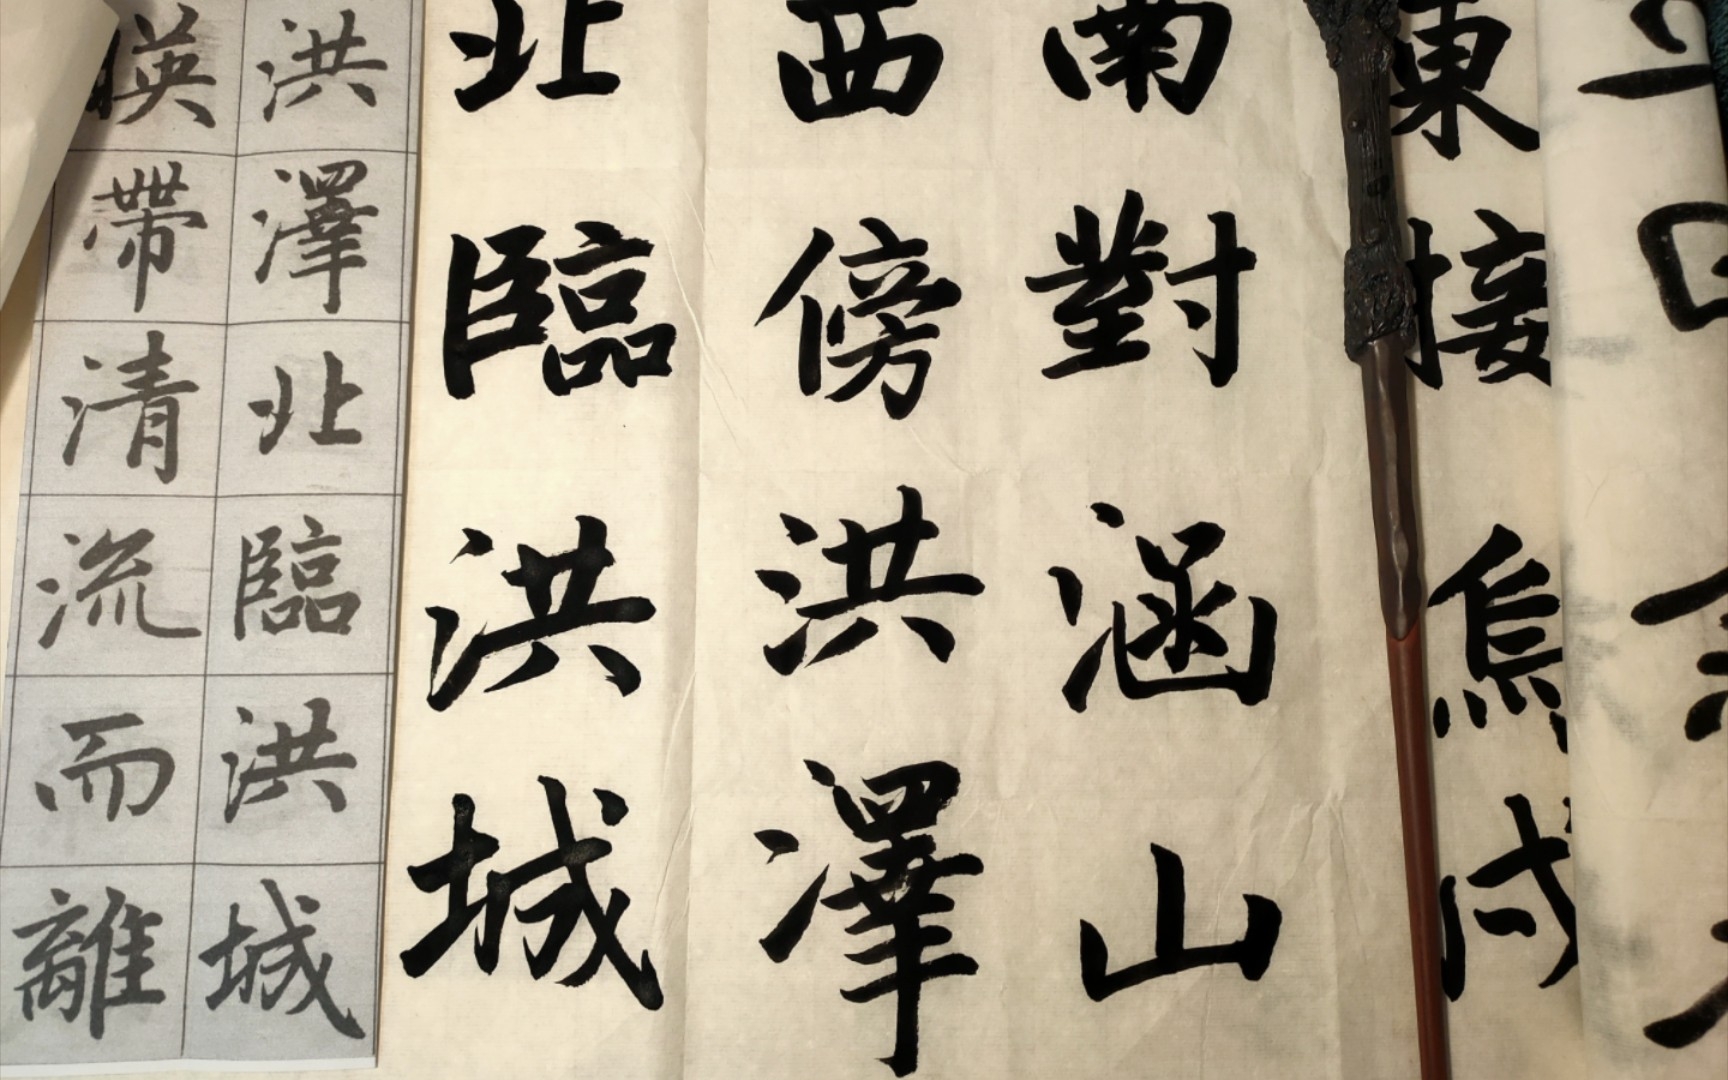 東接烏戍
南對涵山
西傍洪澤
北臨洪城
洪澤北臨洪城
暎帶清流而離